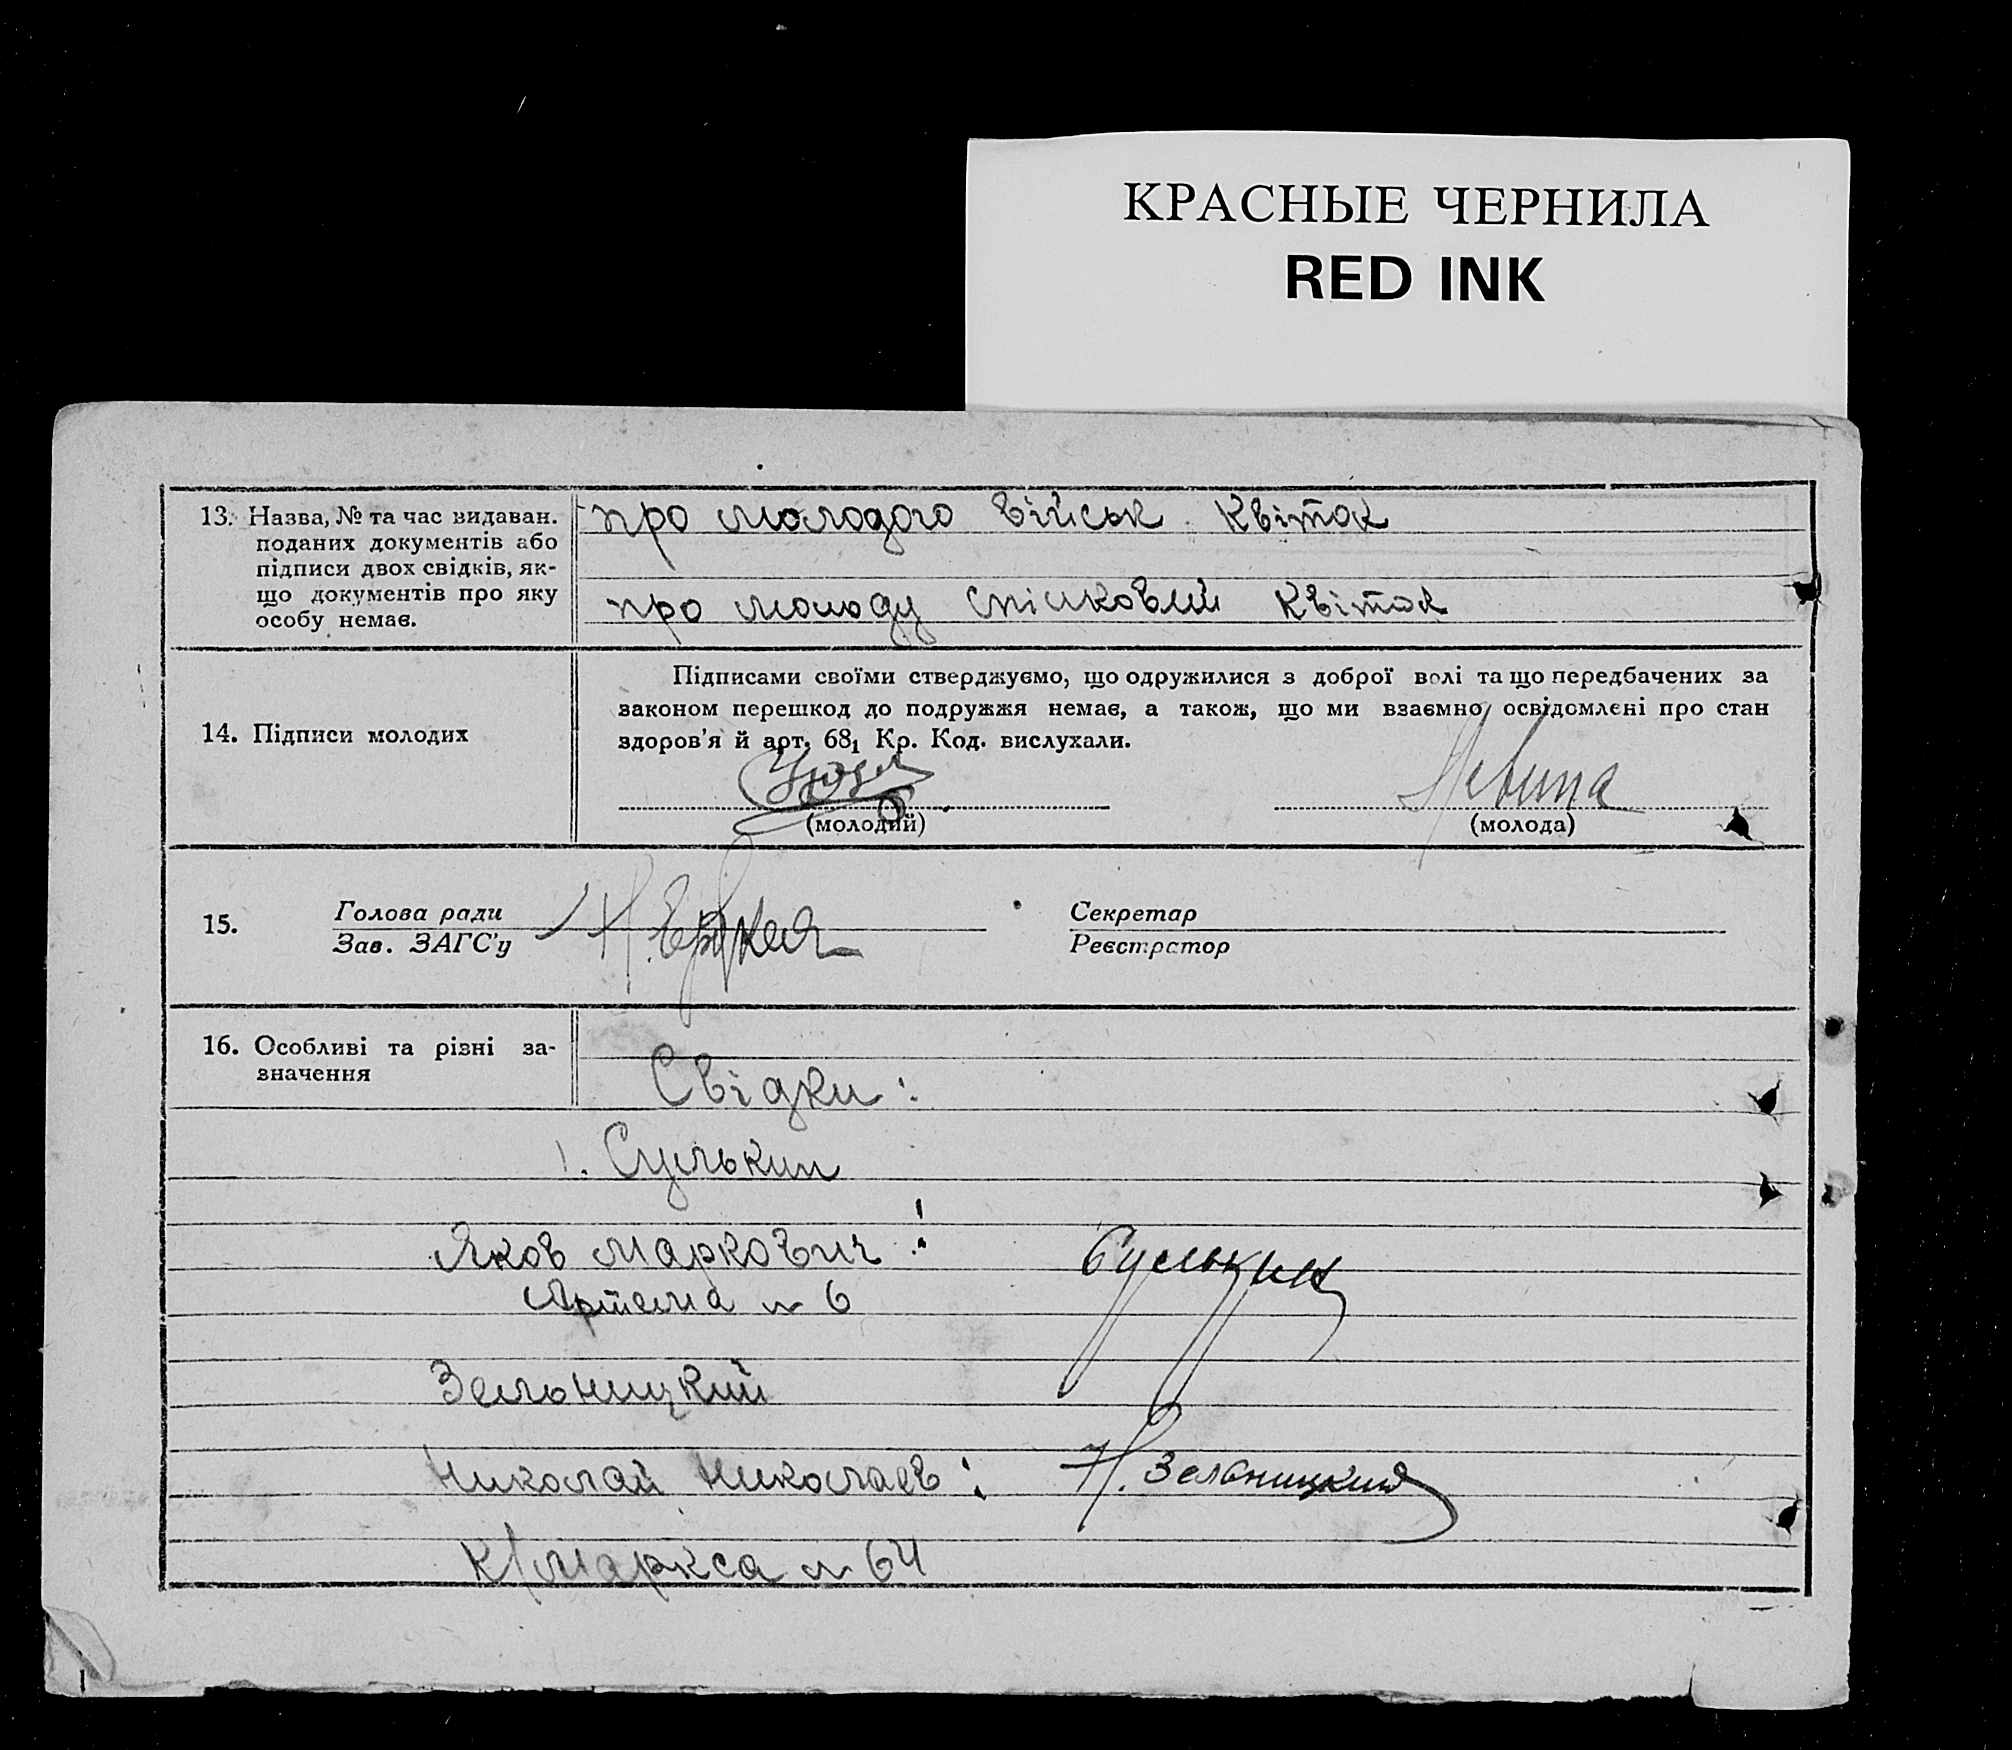 КРАСНЫЕ ЧЕРНИЛА
RED INK
13. Назва, № та час видаван. поданих документів або підписи двох свідків, якщо документів про яку особу немає.
про молодого військ. квиток
про молоду спілковий квиток
14. Підписи молодих
Підписами своїми стверджуємо, що одружилися з доброї волі та що передбачених за
законом перешкод до подружжя немає, а також, що ми взаємно освідомлені про стан
здоров'я й арт. 68₁ Кр. Код. вислухали.
Левина
(молодий)
(молода)
15.
Голова ради
Зав. ЗАГС'у
Секретар
Реєстратор
16. Особливі та різні зазначення
Свідки:
1. Сулькин
Яков Маркович :
Сулькин
Артема № 6
Зельницкий
Николай Николаев :
Н. Зельницкий
К/Маркса № 64